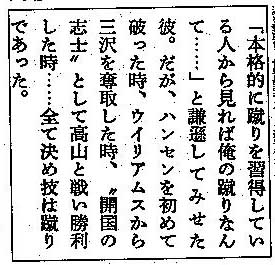 「本格的に蹴りを習得してい
る人から見れば俺の蹴りなん
て……」と謙遜してみせた
彼。だが、ハンセンを初めて
破った時、ウイリアムスから
三沢を奪取した時、〝開国の
志士〟として高山と戦い勝利
した時……全て決め技は蹴り
であった。